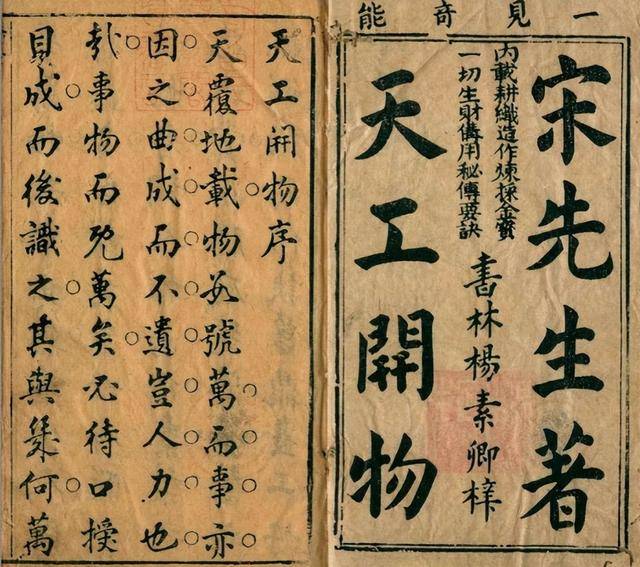 一見奇能
宋先生著
內載耕織造作煉採金寳
一切生財備用秘傳要訣
書林楊素卿梓
天工開物
天工開物序
天覆地載物數號萬而事亦
因之曲成而不遺豈人力也
哉事物而既萬矣必待口授
目成而後識之其與幾何萬